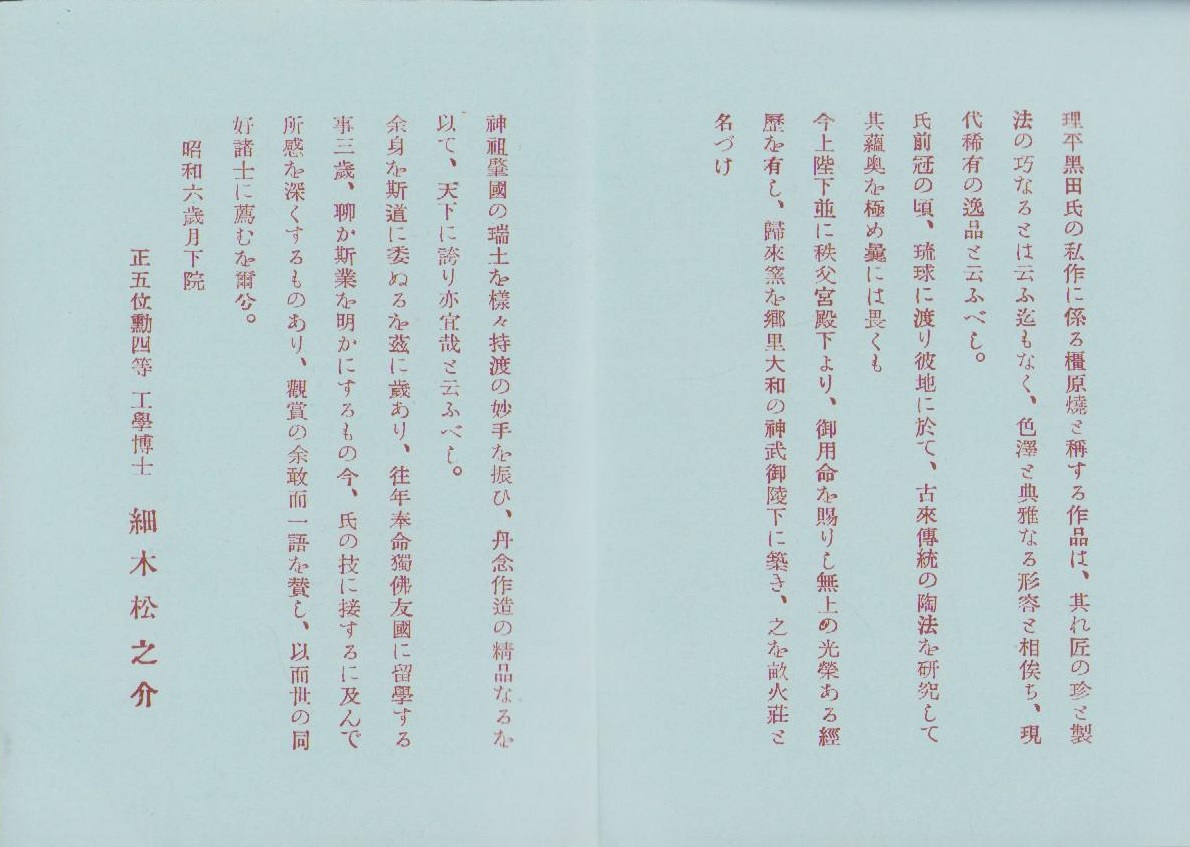 理平黑田氏の私作に係る橿原燒と稱する作品は、其れ匠の珍と製
法の巧なるとは云ふ迄もなく、色澤と典雅なる形容と相俟ち、現
代稀有の逸品と云ふべし。
氏前冠の頃、琉球に渡り彼地に於て、古來傳統の陶法を研究して
其蘊奥を極め曩には畏くも
今上陛下並に秩父宮殿下より、御用命を賜りし無上の光榮ある經
歷を有し、歸來窯を鄕里大和の神武御陵下に築き、之を畝火莊と
名づけ
神祖肇國の瑞土を樣々持渡の妙手を振ひ、丹念作造の精品なるを
以て、天下に誇り亦宜哉と云ふべし。
余身を斯道に委ぬるを茲に歲あり、往年奉命獨佛友國に留學する
事三歲、聊か斯業を明かにするもの今、氏の技に接するに及んで
所感を深くするものあり、觀賞の余敢而一語を賛し、以而世の同
好諸士に薦むを爾公。
昭和六歲月下院
正五位勳四等 工學博士 細木松之介